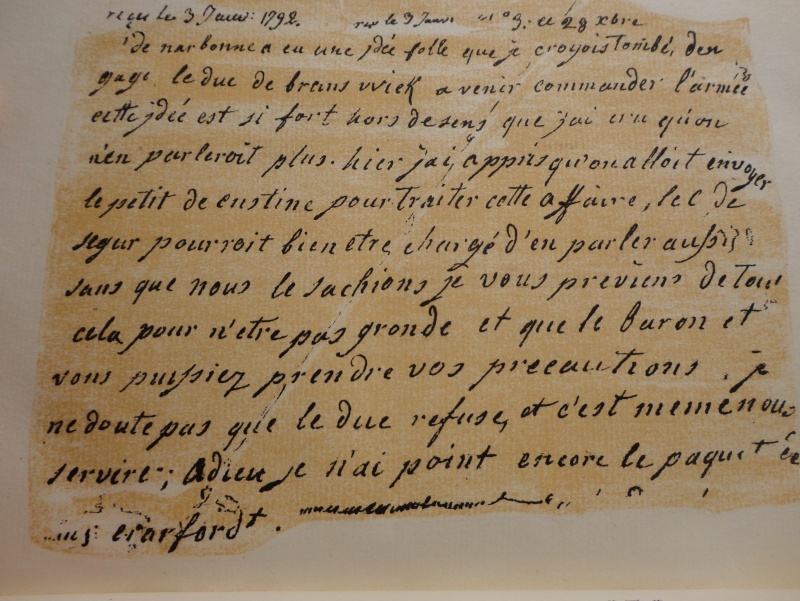 reçu le 3. Janv: 1792. rec le 3 Janv n° 3. ce 28 xbre
de narbonne a eu une jdée folle que je croyois tombé, den
gager le duc de brans vviek a venir commander l'armée
cette jdée est si fort hors de sens que j'ai cru qu'on
n'en parleroit plus. hier j'ai appris qu'on alloit envoyer
le petit de custine pour traiter cette affaire, le C de
segur pourroit bien etre chargé d'en parler aussi
sans que nous le sachions je vous previens de tout
cela pour n'etre pas gronde et que le Baron et
vous puissiez prendre vos precautions. je
ne doute pas que le duc refuse, et c'est meme nous
servire; adieu je n'ai point encore le paquet de
crarfordt.